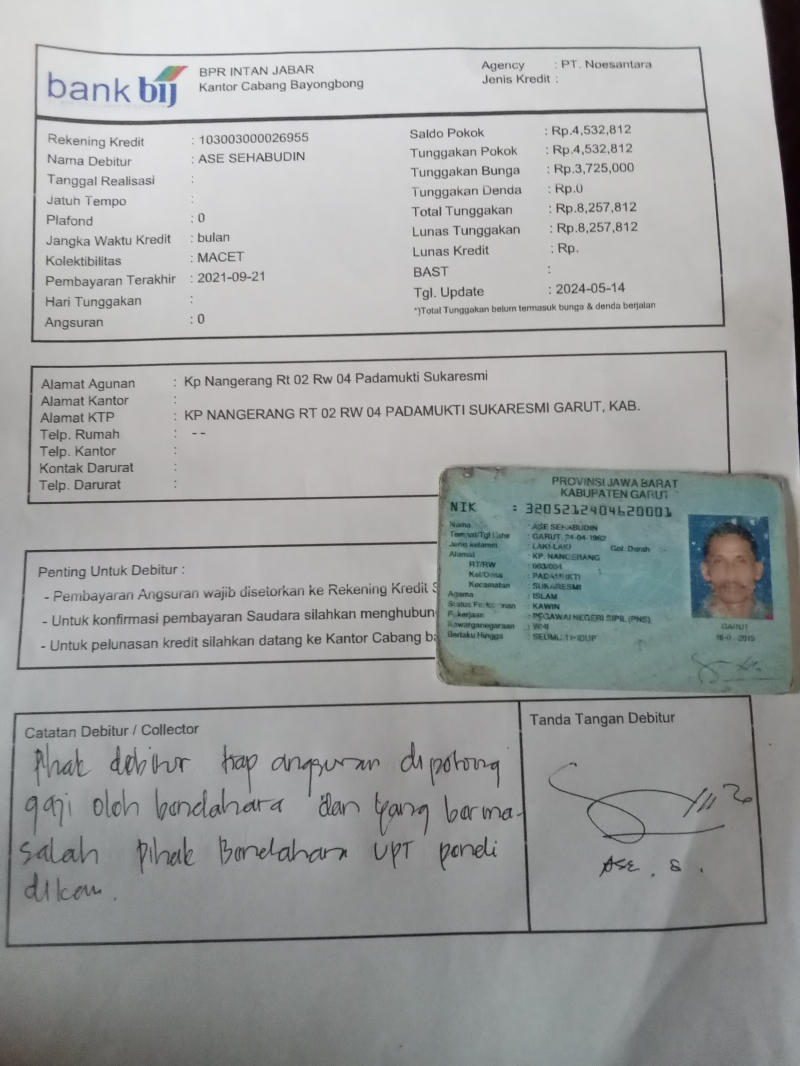 bank bij
BPR INTAN JABAR
Kantor Cabang Bayongbong
Agency : PT. Noesantara
Jenis Kredit :
Rekening Kredit : 103003000026955
Nama Debitur : ASE SEHABUDIN
Tanggal Realisasi :
Jatuh Tempo :
Plafond : 0
Jangka Waktu Kredit : bulan
Kolektibilitas : MACET
Pembayaran Terakhir : 2021-09-21
Hari Tunggakan :
Angsuran : 0
Saldo Pokok : Rp.4,532,812
Tunggakan Pokok : Rp.4,532,812
Tunggakan Bunga : Rp.3,725,000
Tunggakan Denda : Rp.0
Total Tunggakan : Rp.8,257,812
Lunas Tunggakan : Rp.8,257,812
Lunas Kredit : Rp.
BAST :
Tgl. Update : 2024-05-14
*)Total Tunggakan belum termasuk bunga & denda berjalan
Alamat Agunan : Kp Nangerang Rt 02 Rw 04 Padamukti Sukaresmi
Alamat Kantor :
Alamat KTP : KP NANGERANG RT 02 RW 04 PADAMUKTI SUKARESMI GARUT, KAB.
Telp. Rumah : --
Telp. Kantor :
Kontak Darurat :
Telp. Darurat :
PROVINSI JAWA BARAT
KABUPATEN GARUT
NIK : 3205212404620001
Nama : ASE SEHABUDIN
Tempat/Tgl Lahir : GARUT, 24-04-1962
Jenis kelamin : LAKI-LAKI Gol. Darah
Alamat : KP. NANGERANG
RT/RW : 003/004
Kel/Desa : PADAMUKTI
Kecamatan : SUKARESMI
Agama : ISLAM
Status Perkawinan : KAWIN
Pekerjaan : PEGAWAI NEGERI SIPIL (PNS)
Kewarganegaraan : WNI
Berlaku Hingga : SEUMUR HIDUP
GARUT
Penting Untuk Debitur :
- Pembayaran Angsuran wajib disetorkan ke Rekening Kredit S
- Untuk konfirmasi pembayaran Saudara silahkan menghubun
- Untuk pelunasan kredit silahkan datang ke Kantor Cabang ba
Catatan Debitur / Collector
Pihak debitur tiap angsuran dipotong
gaji oleh bendahara dan yang berma-
salah pihak Bendahara UPT pendi
dikan.
Tanda Tangan Debitur
ASE . S .